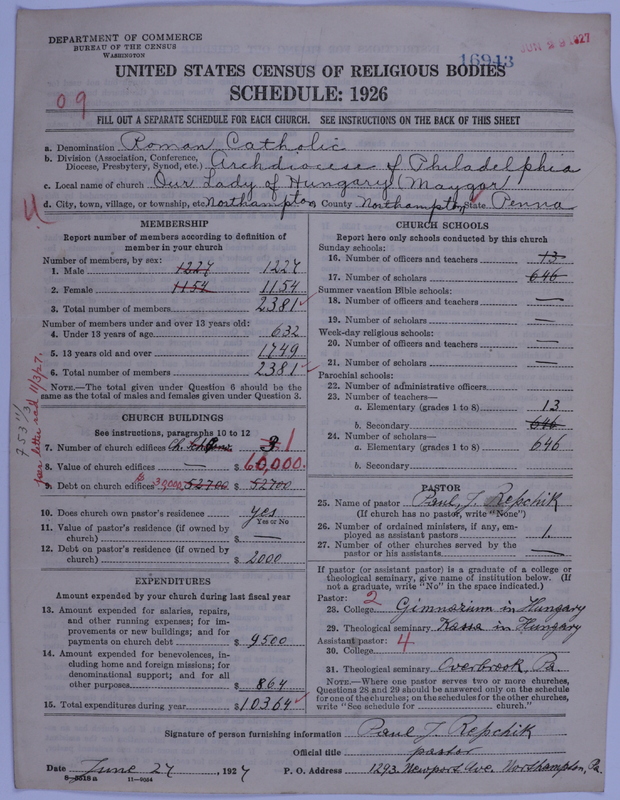 DEPARTMENT OF COMMERCE
BUREAU OF THE CENSUS
WASHINGTON
16943
JUN 29 1927
UNITED STATES CENSUS OF RELIGIOUS BODIES
SCHEDULE: 1926
09
FILL OUT A SEPARATE SCHEDULE FOR EACH CHURCH. SEE INSTRUCTIONS ON THE BACK OF THIS SHEET
a. Denomination Roman Catholic
b. Division (Association, Conference, Diocese, Presbytery, Synod, etc.) Archdiocese of Philadelphia
c. Local name of church Our Lady of Hungary (Maygor
d. City, town, village, or township, etc. Northampton County Northampton, State Penna
MEMBERSHIP
Report number of members according to definition of
member in your church
Number of members, by sex:
1. Male 1227 1227
2. Female 1154 1154
3. Total number of members 2381
Number of members under and over 13 years old:
4. Under 13 years of age 632
5. 13 years old and over 1749
6. Total number of members 2381
NOTE.—The total given under Question 6 should be the
same as the total of males and females given under Question 3.
per letter recd 11/3/27.
CHURCH BUILDINGS
See instructions, paragraphs 10 to 12
7. Number of church edifices 1
8. Value of church edifices — $ 60,000.
9. Debt on church edifices 52700 $ 52700
10. Does church own pastor's residence yes
Yes or No
11. Value of pastor's residence (if owned by
church) $ —
12. Debt on pastor's residence (if owned by
church) $ 2000
EXPENDITURES
Amount expended by your church during last fiscal year
13. Amount expended for salaries, repairs,
and other running expenses; for im-
provements or new buildings; and for
payments on church debt $ 9500
14. Amount expended for benevolences, in-
cluding home and foreign missions; for
denominational support; and for all
other purposes $ 864
15. Total expenditures during year $ 10364
CHURCH SCHOOLS
Report here only schools conducted by this church
Sunday schools:
16. Number of officers and teachers 13
17. Number of scholars 646
Summer vacation Bible schools:
18. Number of officers and teachers —
19. Number of scholars —
Week-day religious schools:
20. Number of officers and teachers —
21. Number of scholars —
Parochial schools:
22. Number of administrative officers
23. Number of teachers—
a. Elementary (grades 1 to 8) 13
b. Secondary 646
24. Number of scholars—
a. Elementary (grades 1 to 8) 646
b. Secondary
PASTOR
25. Name of pastor Paul J. Repchik
(If church has no pastor, write "None")
26. Number of ordained ministers, if any, em-
ployed as assistant pastors 1.
27. Number of other churches served by the
pastor or his assistants —
If pastor (or assistant pastor) is a graduate of a college or
theological seminary, give name of institution below. (If
not a graduate, write "No" in the space indicated.)
Pastor: 2
28. College Gimnazium in Hungary
29. Theological seminary Kassa in Hungary
Assistant pastor: 4
30. College
31. Theological seminary Overbrook, Pa.
NOTE.—Where one pastor serves two or more churches,
Questions 28 and 29 should be answered only on the schedule
for one of the churches; on the schedules for the other churches,
write "See schedule for church."
Signature of person furnishing information Paul J. Repchik
Official title pastor
Date June 27, 1927 P. O. Address 1293 Newport Ave. Northampton, Pa.
8-5518a 11-9054